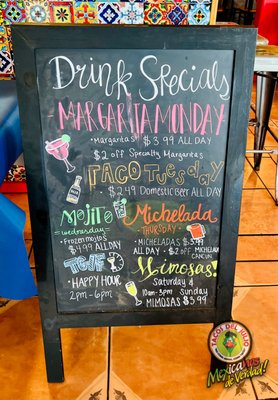 Drink Specials
MARGARITA MONDAY
• Margaritas $3.99 ALL DAY
$2 off Specialty Margaritas
TACO Tuesday
• $2.49 Domestic Beer ALL DAY
Mojito
wednesday
• Frozen mojitos
$4.99 ALL DAY
Michelada
• THURSDAY •
• MICHELADAS $3.99
ALL DAY
• MICHELADA
CANCUN
TGIF
• HAPPY HOUR
2pm-6pm
Mimosas!
Saturday &
10am-3pm Sunday
MIMOSAS $3.99
TACOS DEL JULIO
Mexicanos
de Verdad!